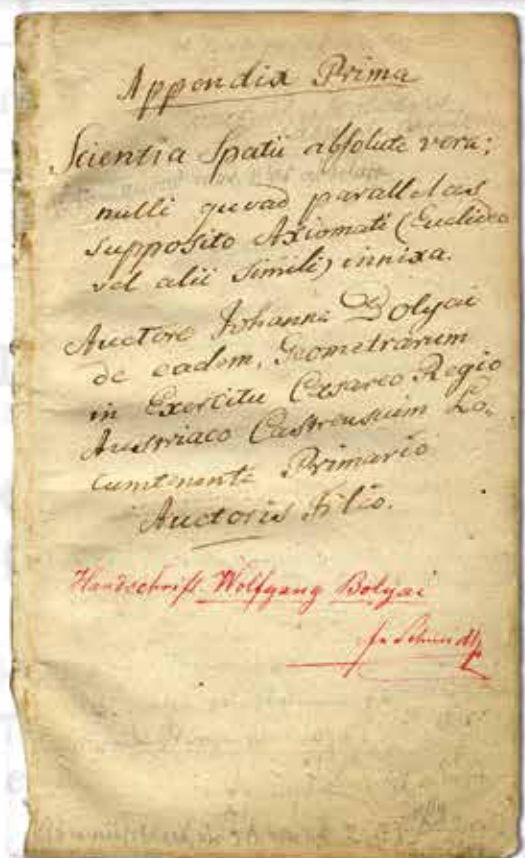 Appendix Prima
Scientia Spatii absolute vera;
nulli quoad parallelas
supposito Axiomati (Euclideo
vel alii simili) innixa.
Auctore Johanne Bolyai
de eadem, Geometrarum
in Exercitu Caesareo Regio
Austriaco Castrensium Lo-
cumtenente Primario
Auctoris Filio.
Handschrift Wolfgang Bolyai
Fr Schmidt